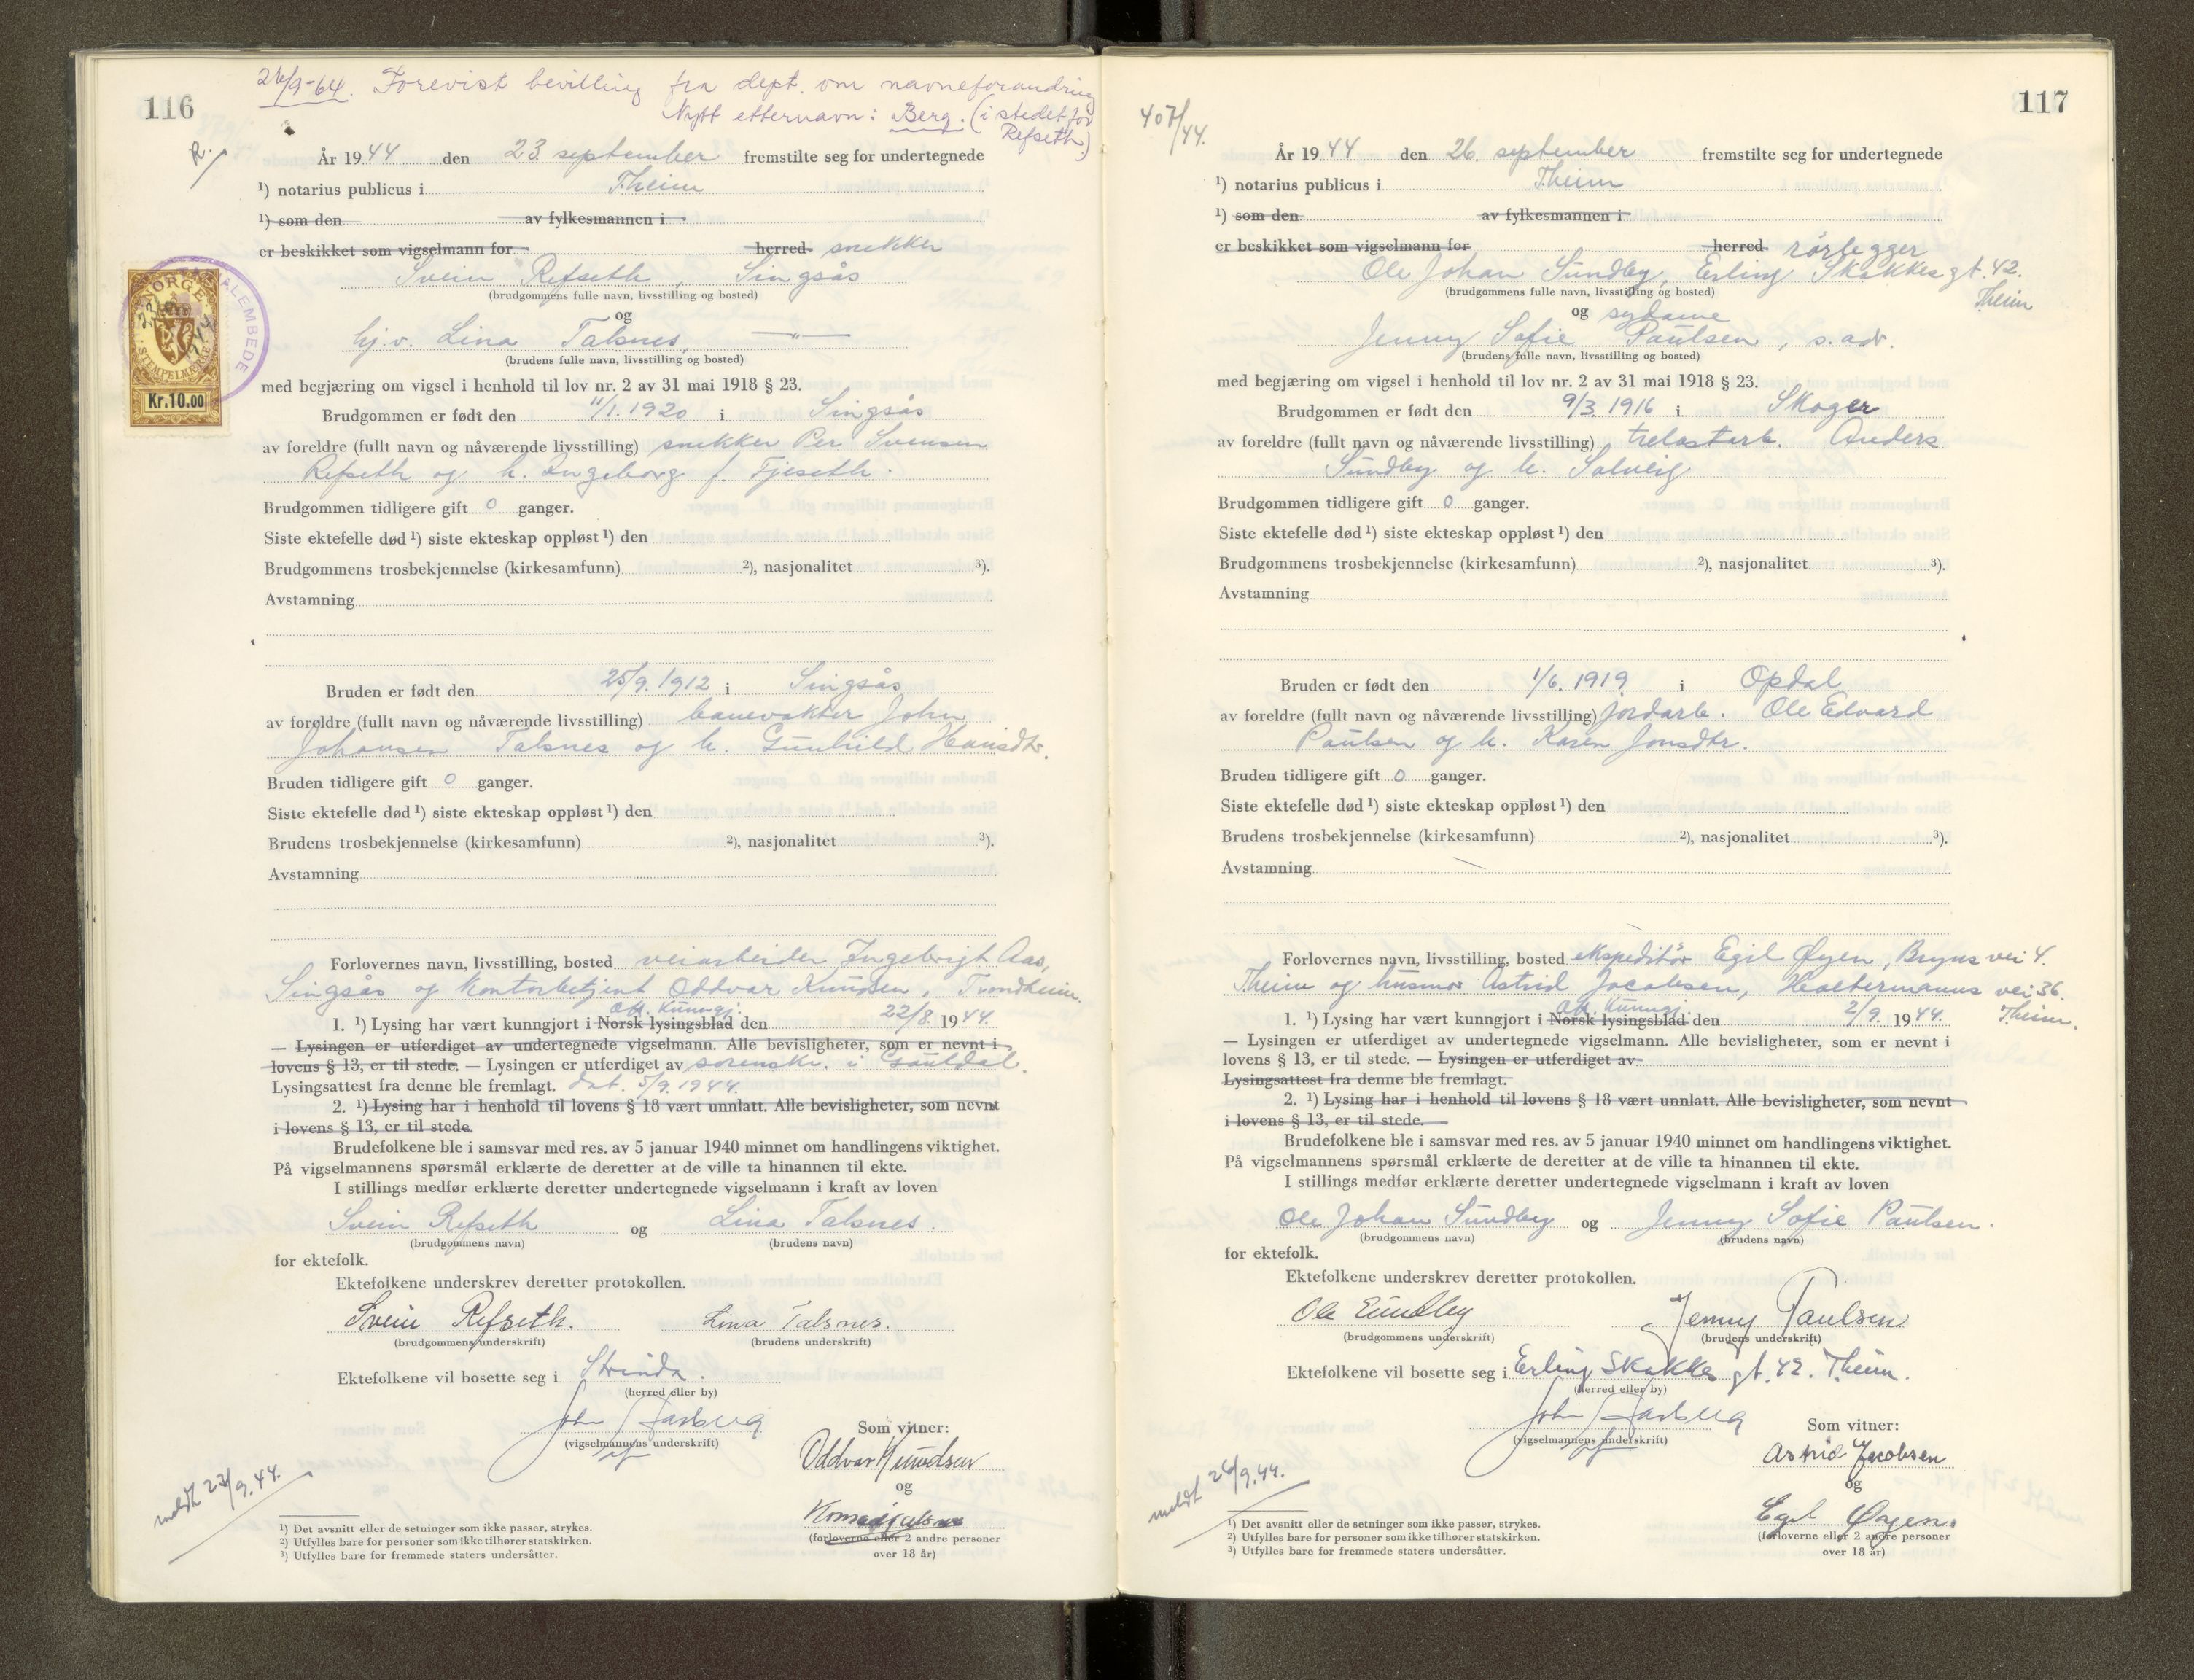 116
26/9-64. Forevist bevilling fra dept. om navneforandring
Nytt etternavn: Berg. (i stedet for
Refseth.)
R.
År 1944 den 23. september fremstilte seg for undertegnede
¹) notarius publicus i T.heim
¹) som den av fylkesmannen i
er beskikket som vigselmann for herred snekker
Svein Refseth, Singsås
(brudgommens fulle navn, livsstilling og bosted)
og
hj.v. Lina Talsnes, —"—
(brudens fulle navn, livsstilling og bosted)
NORGE
STEMPELMERKE
Kr.10.00
ALEMBEDE
med begjæring om vigsel i henhold til lov nr. 2 av 31 mai 1918 § 23.
Brudgommen er født den 11/1. 1920 i Singsås
av foreldre (fullt navn og nåværende livsstilling) snekker Per Svensen
Refseth og h. Ingeborg f. Fjeseth.
Brudgommen tidligere gift 0 ganger.
Siste ektefelle død ¹) siste ekteskap oppløst ¹) den
Brudgommens trosbekjennelse (kirkesamfunn) ²), nasjonalitet ³).
Avstamning
Bruden er født den 25/9. 1912 i Singsås
av foreldre (fullt navn og nåværende livsstilling) banevokter John
Johansen Talsnes og h. Gunhild Hansdtr.
Bruden tidligere gift 0 ganger.
Siste ektefelle død ¹) siste ekteskap oppløst ¹) den
Brudens trosbekjennelse (kirkesamfunn) ²), nasjonalitet ³).
Avstamning
Forlovernes navn, livsstilling, bosted veiarbeider Ingebrigt Aas,
Singsås og kontorbetjent Oddvar Knudsen, Trondheim.
Off. kunngj.
1. ¹) Lysing har vært kunngjort i Norsk lysingsblad den 22/8. 1944.
— Lysingen er utferdiget av undertegnede vigselmann. Alle bevisligheter, som er nevnt i
lovens § 13, er til stede. — Lysingen er utferdiget av sorenskr. i Gauldal.
Lysingsattest fra denne ble fremlagt. dat. 5/9. 1944.
2. ¹) Lysing har i henhold til lovens § 18 vært unnlatt. Alle bevisligheter, som nevnt
i lovens § 13, er til stede.
Brudefolkene ble i samsvar med res. av 5 januar 1940 minnet om handlingens viktighet.
På vigselmannens spørsmål erklærte de deretter at de ville ta hinannen til ekte.
I stillings medfør erklærte deretter undertegnede vigselmann i kraft av loven
Svein Refseth og Lina Talsnes.
(brudgommens navn) (brudens navn)
for ektefolk.
Ektefolkene underskrev deretter protokollen.
Svein Refseth. Lina Talsnes.
(brudgommens underskrift) (brudens underskrift)
Ektefolkene vil bosette seg i Strinda.
(herred eller by)
John Aasberg
(vigselmannens underskrift)
Som vitner:
Oddvar Knudsen
og
(forloverne eller 2 andre personer
over 18 år)
meldt 23/9.44.
¹) Det avsnitt eller de setninger som ikke passer, strykes.
²) Utfylles bare for personer som ikke tilhører statskirken.
³) Utfylles bare for fremmede staters undersåtter.
117
407/44.
År 1944 den 26. september fremstilte seg for undertegnede
¹) notarius publicus i T.heim
¹) som den av fylkesmannen i
er beskikket som vigselmann for herred rørlegger
Ole Johan Sundby, Erling Skakkes gt. 42.
T.heim
(brudgommens fulle navn, livsstilling og bosted)
og sydame
Jenny Sofie Paulsen, s. adr.
(brudens fulle navn, livsstilling og bosted)
med begjæring om vigsel i henhold til lov nr. 2 av 31 mai 1918 § 23.
Brudgommen er født den 9/3. 1916 i Skoger
av foreldre (fullt navn og nåværende livsstilling) trelastarb. Anders
Sundby og h. Solveig
Brudgommen tidligere gift 0 ganger.
Siste ektefelle død ¹) siste ekteskap oppløst ¹) den
Brudgommens trosbekjennelse (kirkesamfunn) ²), nasjonalitet ³).
Avstamning
Bruden er født den 1/6. 1919 i Opdal
av foreldre (fullt navn og nåværende livsstilling) jordarb. Ole Edvard
Paulsen og h. Karen Jonsdtr.
Bruden tidligere gift 0 ganger.
Siste ektefelle død ¹) siste ekteskap oppløst ¹) den
Brudens trosbekjennelse (kirkesamfunn) ²), nasjonalitet ³).
Avstamning
Forlovernes navn, livsstilling, bosted ekspeditør Egil Øyen, Bryns vei 4.
T.heim og husmor Astrid Jacobsen, Holtermanns vei 36.
T.heim.
Off. kunngj.
1. ¹) Lysing har vært kunngjort i Norsk lysingsblad den 2/9. 1944.
— Lysingen er utferdiget av undertegnede vigselmann. Alle bevisligheter, som er nevnt i
lovens § 13, er til stede. — Lysingen er utferdiget av
Lysingsattest fra denne ble fremlagt.
2. ¹) Lysing har i henhold til lovens § 18 vært unnlatt. Alle bevisligheter, som nevnt
i lovens § 13, er til stede.
Brudefolkene ble i samsvar med res. av 5 januar 1940 minnet om handlingens viktighet.
På vigselmannens spørsmål erklærte de deretter at de ville ta hinannen til ekte.
I stillings medfør erklærte deretter undertegnede vigselmann i kraft av loven
Ole Johan Sundby og Jenny Sofie Paulsen.
(brudgommens navn) (brudens navn)
for ektefolk.
Ektefolkene underskrev deretter protokollen.
Ole Sundby Jenny Paulsen
(brudgommens underskrift) (brudens underskrift)
Ektefolkene vil bosette seg i Erling Skakkes gt. 42. T.heim.
(herred eller by)
John Aasberg
(vigselmannens underskrift)
Som vitner:
Astrid Jacobsen
og
Egil Øyen.
(forloverne eller 2 andre personer
over 18 år)
meldt 26/9.44.
¹) Det avsnitt eller de setninger som ikke passer, strykes.
²) Utfylles bare for personer som ikke tilhører statskirken.
³) Utfylles bare for fremmede staters undersåtter.